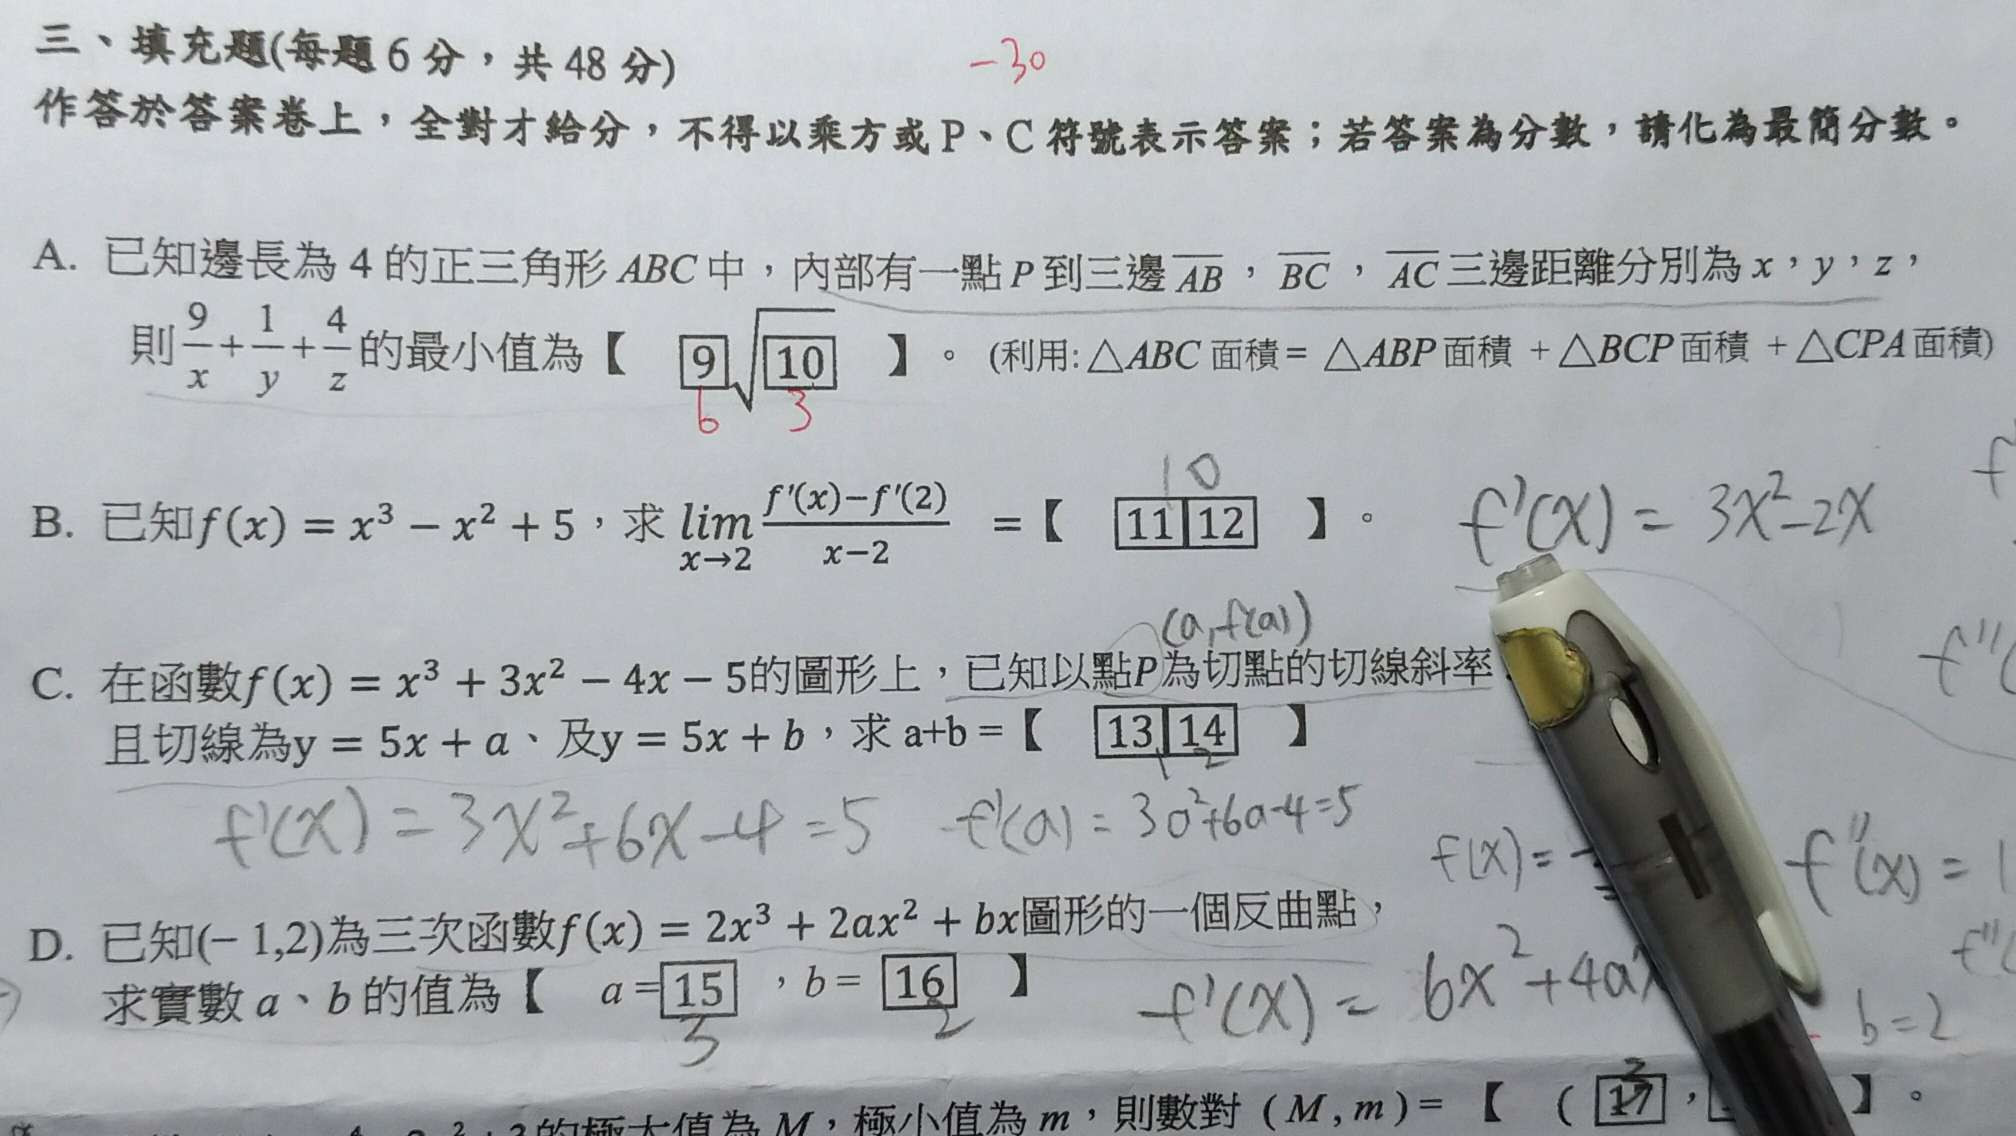 三、填充題(每題 6 分，共 48 分)
-30
作答於答案卷上，全對才給分，不得以乘方或 P、C 符號表示答案；若答案為分數，請化為最簡分數。
A. 已知邊長為 4 的正三角形 ABC 中，內部有一點 P 到三邊 AB，BC，AC 三邊距離分別為 x，y，z，
則 9/x + 1/y + 4/z 的最小值為【 9 √10 】。(利用:△ABC 面積 = △ABP 面積 + △BCP 面積 + △CPA 面積)
6 3
10
B. 已知f(x) = x³ − x² + 5，求 lim x→2 f′(x)−f′(2) / x−2 =【 11 12 】。
f'(x) = 3x²-2x
(a, f(a))
C. 在函數f(x) = x³ + 3x² − 4x − 5的圖形上，已知以點P為切點的切線斜率
且切線為y = 5x + a、及y = 5x + b，求 a+b =【 13 14 】
12
f'(x) = 3x²+6x-4 = 5
f'(a) = 3a²+6a-4=5
f(x) =
f''(x) =
D. 已知(− 1,2)為三次函數f(x) = 2x³ + 2ax² + bx圖形的一個反曲點，
求實數 a、b 的值為【 a = 15 ，b = 16 】
3 2
f'(x) = 6x²+4ax
b=2
的極大值為 M，極小值為 m，則數對 (M, m) = 【 ( 17 , 】。